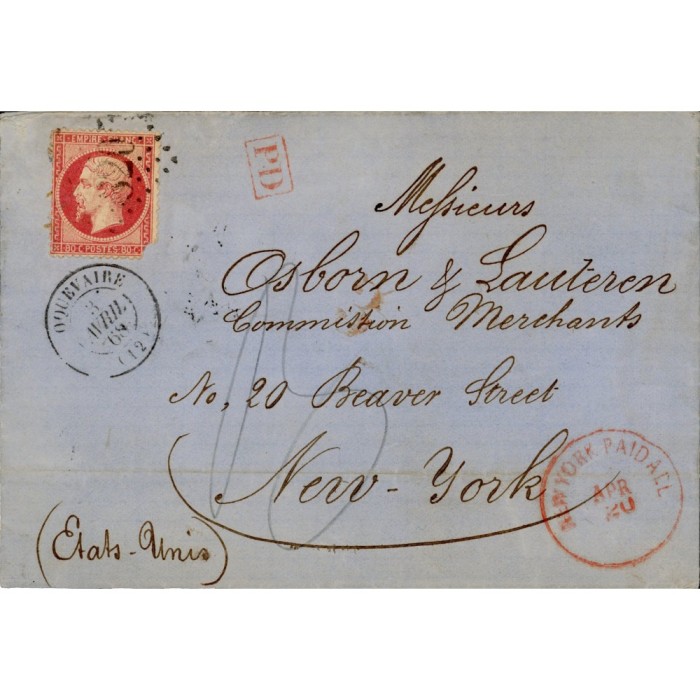 EMPIRE FRANC
80·C POSTES 80·C
PD
OQUEVAIRE
3
AVRIL
65
(12)
Messieurs
Osborn & Lauteren
Commission Merchants
No, 20 Beaver Street
New-York
(Etats-Unis)
NEW YORK PAID ALL
APR
20